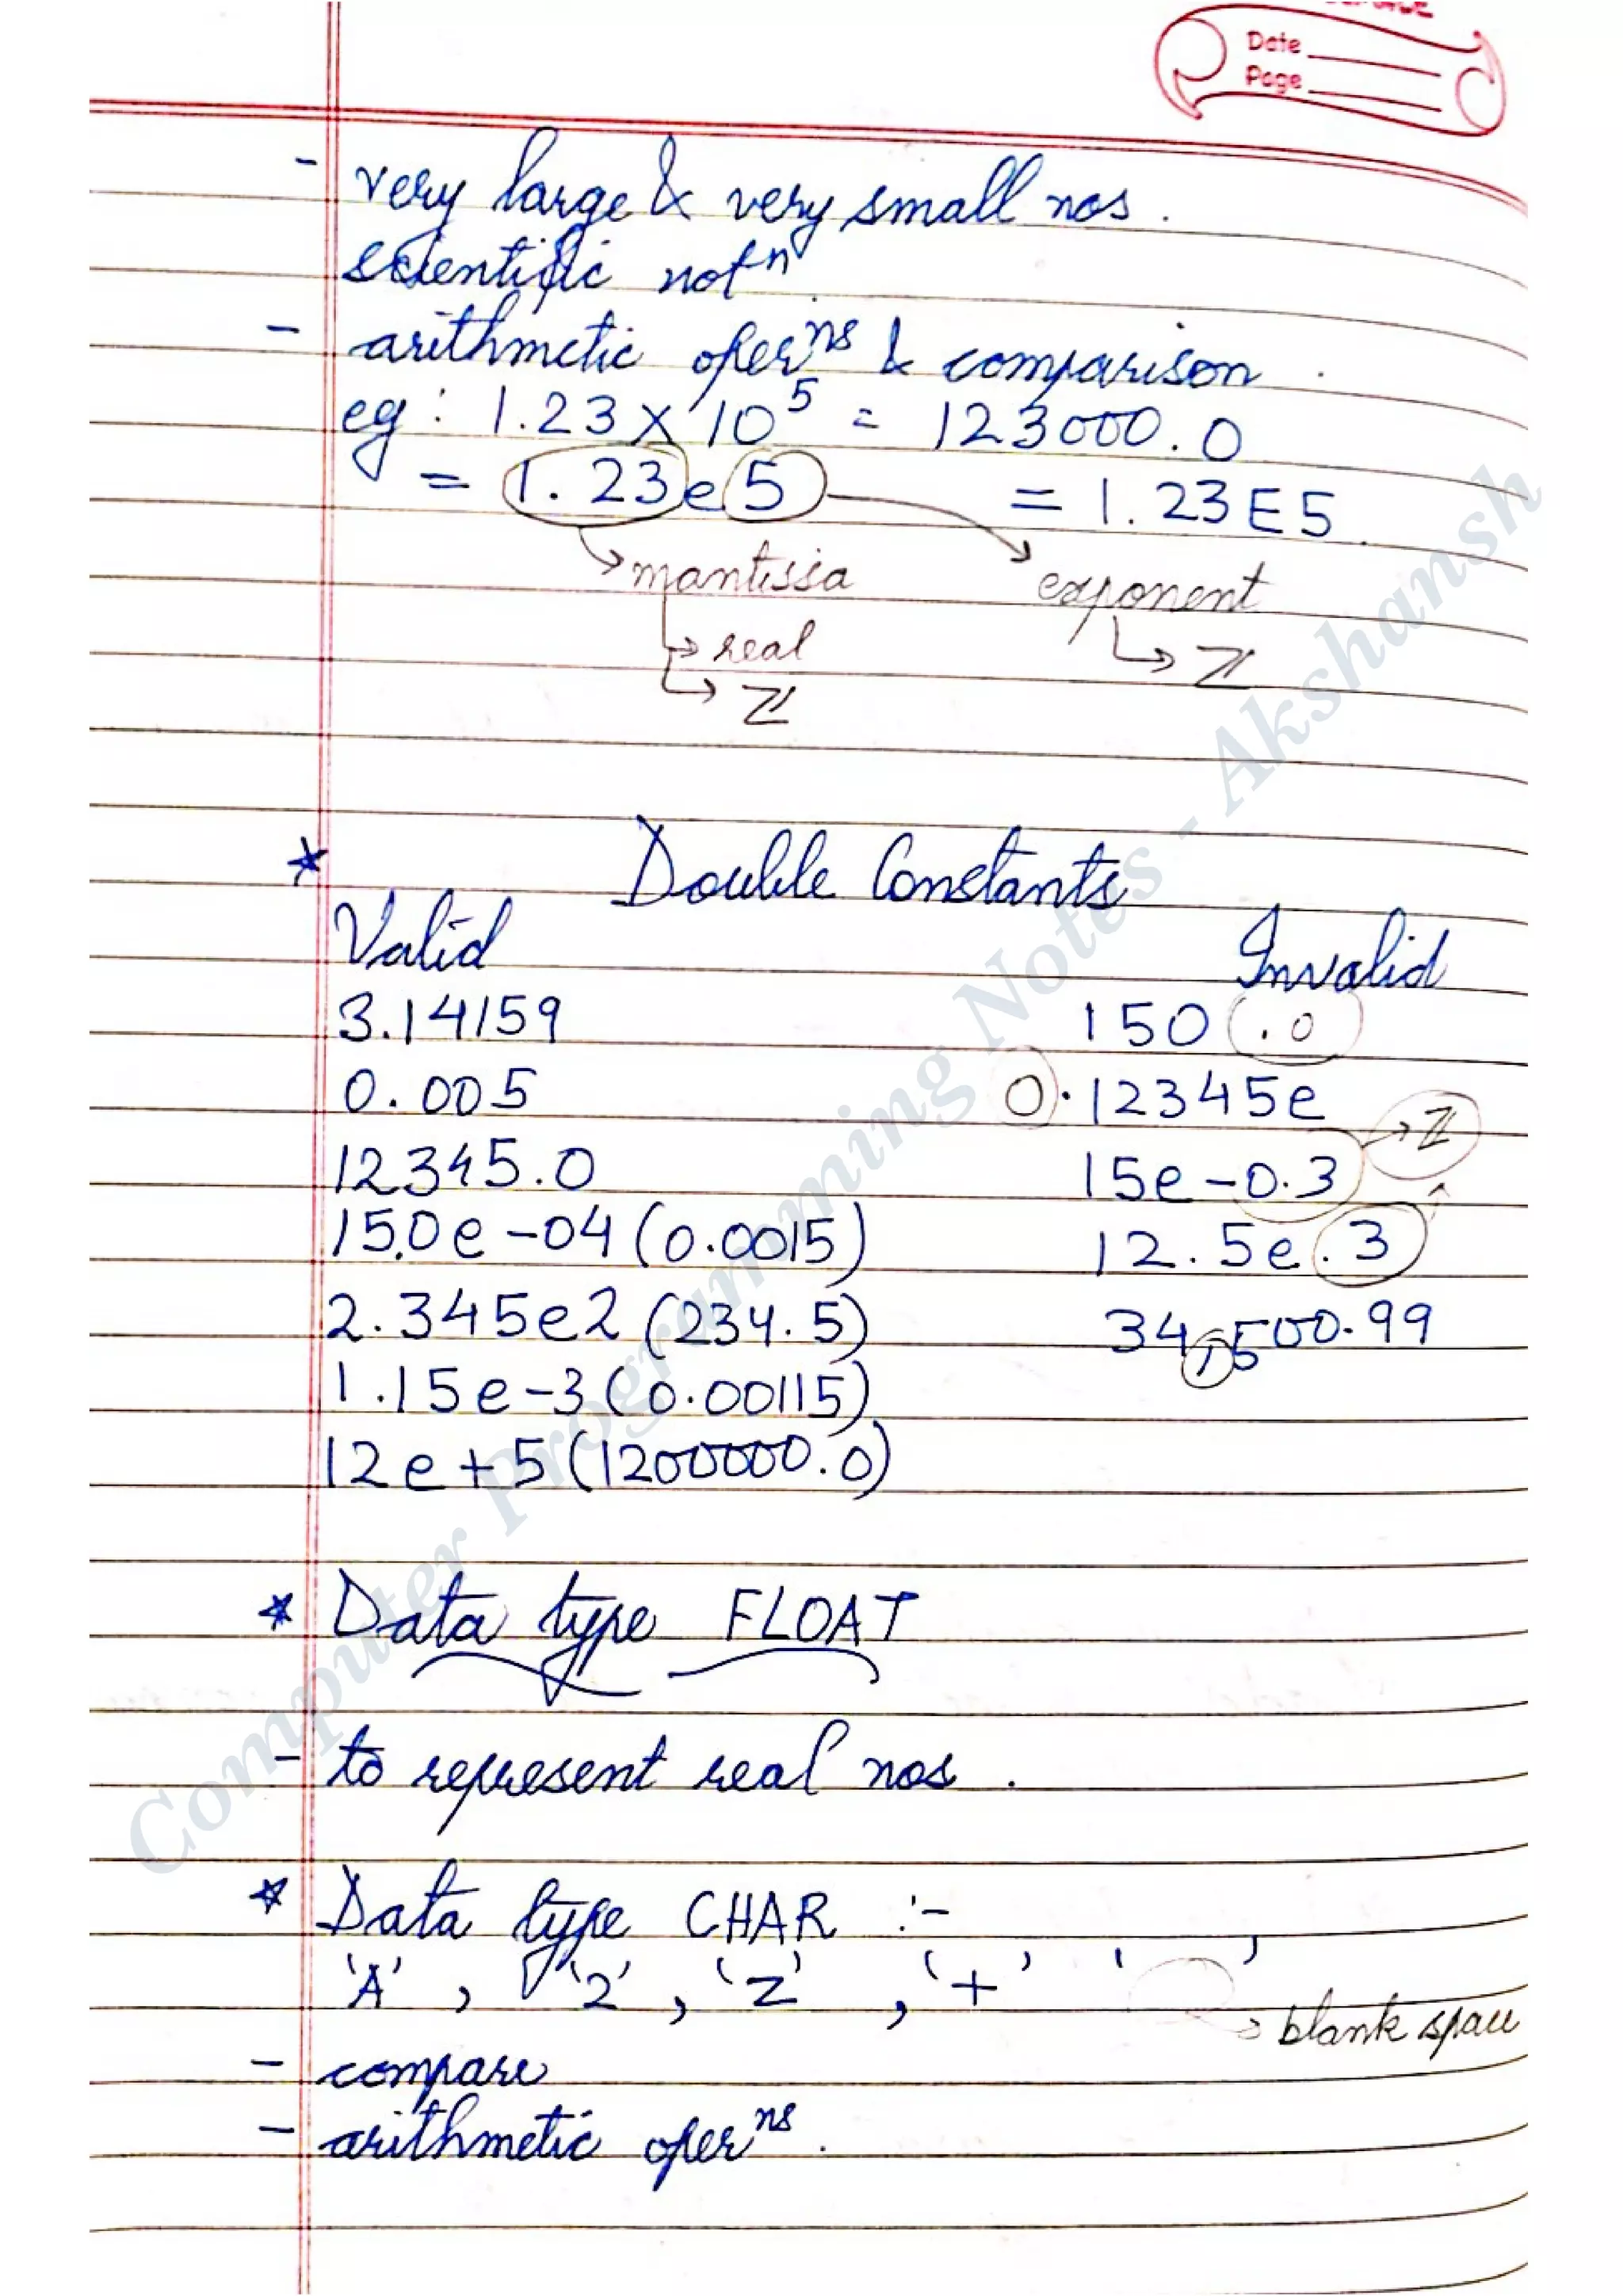 Date
Page
- very large & very small nos.
scientific notⁿ.
- arithmetic operⁿˢ & comparison.
eg : 1.23 × 10⁵ = 123000.0
= 1.23e5 = 1.23E5.
mantissa exponent
→ real → ℤ
→ ℤ
* Double Constants
Valid Invalid
3.14159 150 .0
0.005 0.12345e
12345.0 15e-0.3 → ℤ
15.0e-04 (0.0015) 12.5e.3
2.345e2 (234.5) 34,500.99
1.15e-3 (0.00115)
12e+5 (1200000.0)
* Data type FLOAT
- to represent real nos.
* Data type CHAR :-
'A', '2', 'Z', '+' ' '
→ blank space
- compare
- arithmetic operⁿˢ.
Computer Programming Notes - Akshansh